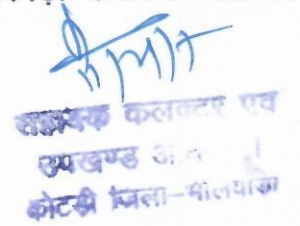 सहायक कलक्टर एवं
उपखण्ड
कोटडी जिला-भीलवाड़ा